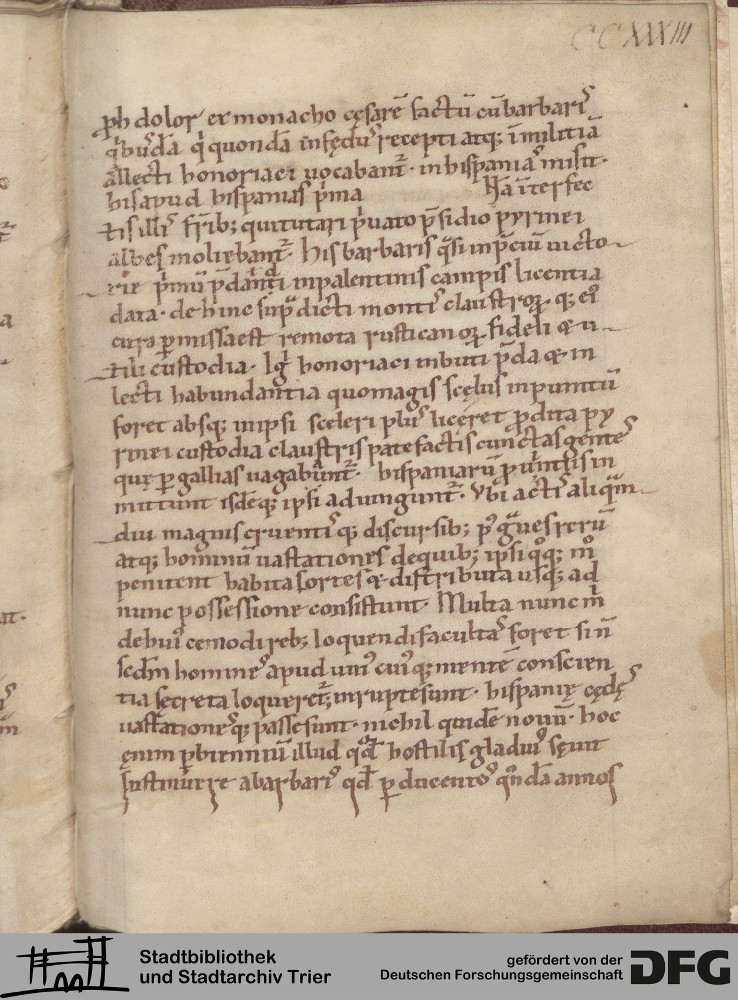 CCXXXIII
ꝓh dolor ex monacho cęsarē factū cū barbaris
qͥbusdā qͥ quondā in fędus recepti atq; ī militiā
allecti honoriaci uocabant᷑. in hispanias misit.
his apud hispanias pͥma Nā īterfec
tis illis frīb; qui tutari pͥuato p̄sidio pyrinei
alpes moliebant᷑. his barbaris qͣsi inp̄ciū uicto
rie pͥmū p̄dandi in palentinis campis licentia
data. dehinc supͣdicti montis claustroꝝ q; eiꝰ
cura ꝑmissa est remota rusticanoꝝ fideli & u
tili custodia. Igͥ honoriaci inbuti p̄da & in
lecti habundantia quo magis scęlus inpunitū
foret absq; in ipsi sceleri plus liceret ꝓdita py
rinei custodia claustris patefactis cunctas gentes
quę ꝑ gallias uagabunt᷑. hispaniarū ꝓuintiis in
mittunt isdēq; ipsi adiungunt᷑. Vbi actis aliqͣm
diu magnis cruentis q; discursib; pꝰ gͣues rerū
atq; hominū uastationes de quib; ipsi qͦq; mͦ
penitent habita sortes & distributa usq; ad
nunc possessione consistunt. Multa nunc m̄
de huiꝰcemodi reb; loquendi facultas foret si n̄
scdm homines apud uniꝰcuiꝰq; mentē conscien
tia secreta loqueret᷑; inrupte sunt. hispanię cędes
uastationesq; passe sunt. nichil quidē nouū. hoc
enim ꝑ biennium illud qͦd hostilis gladius sęuit
sustinuere a barbaris qͦd ꝑ ducentos qͦndā annos
Stadtbibliothek
und Stadtarchiv Trier
gefördert von der
Deutschen Forschungsgemeinschaft
DFG